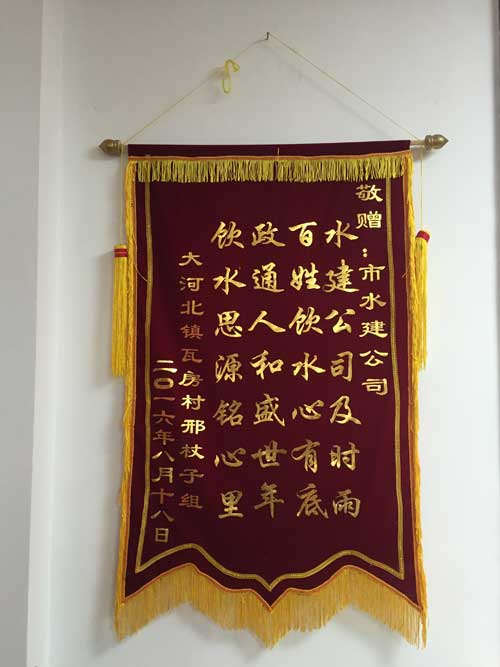 敬赠：市水建公司
水建公司及时雨
百姓饮水心有底
政通人和盛世年
饮水思源铭心里
大河北镇瓦房村邢杖子组
二〇一六年八月十八日